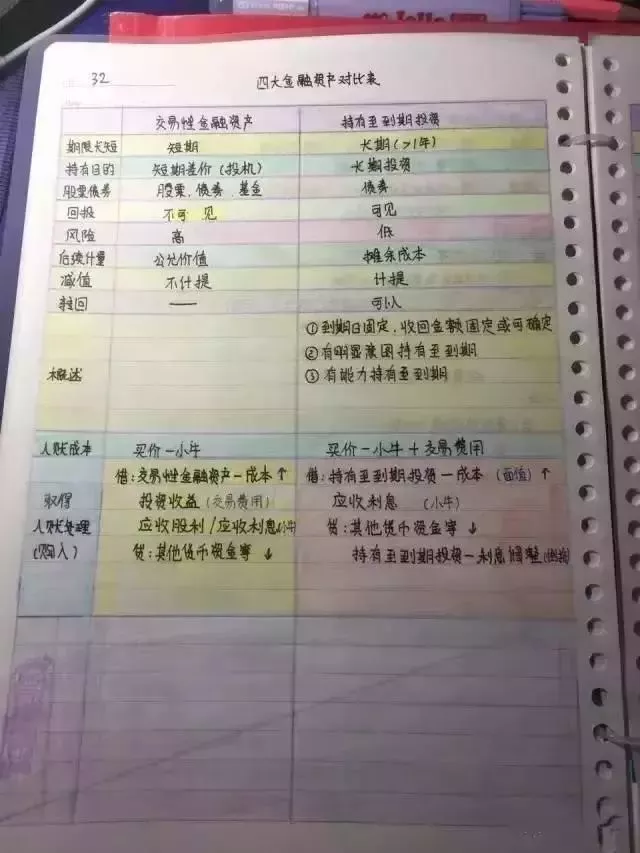 32
四大金融资产对比表
交易性金融资产 持有至到期投资
期限长短 短期 长期(>1年)
持有目的 短期差价(投机) 长期投资
股票债券 股票、债券、基金 债券
回报 不可见 可见
风险 高 低
后续计量 公允价值 摊余成本
减值 不计提 计提
转回 —— 可以
①到期日固定、收回金额固定或可确定
②有明显意图持有至到期
③有能力持有至到期
概述
入账成本 买价-小牛 买价-小牛+交易费用
借:交易性金融资产-成本↑ 借:持有至到期投资-成本(面值)↑
取得 投资收益(交易费用) 应收利息 (小牛)
入账处理 应收股利/应收利息(小牛) 贷:其他货币资金等 ↓
(购入) 贷:其他货币资金等 ↓ 持有至到期投资-利息调整